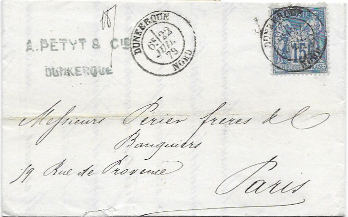 A. PETYT & Cie
DUNKERQUE
DUNKERQUE
22
JUIL
79
NORD
DUNKERQUE
15
Messieurs Périer frères & Cie
Banquiers
19 Rue de Provence
Paris